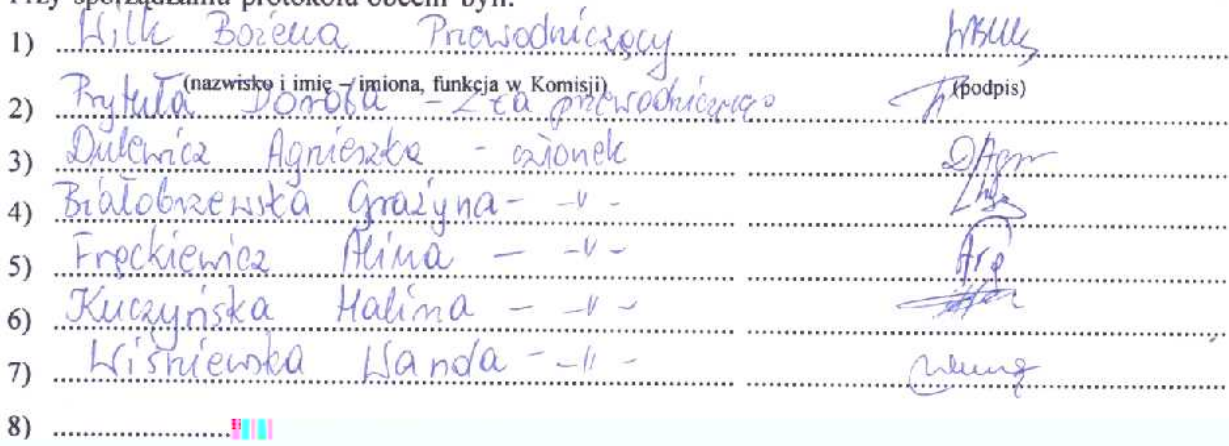 Przy sporządzaniu protokołu obecni byli:
1) Wilk Bożena Przewodniczący
(nazwisko i imię – imiona, funkcja w Komisji) (podpis)
2) Prytuła Dorota - Z-ca przewodniczącego
3) Dulewicz Agnieszka - członek
4) Białobrzewska Grażyna - -"-
5) Fręckiewicz Alina - -"-
6) Kuczyńska Halina - -"-
7) Wiśniewska Wanda - -"-
8)